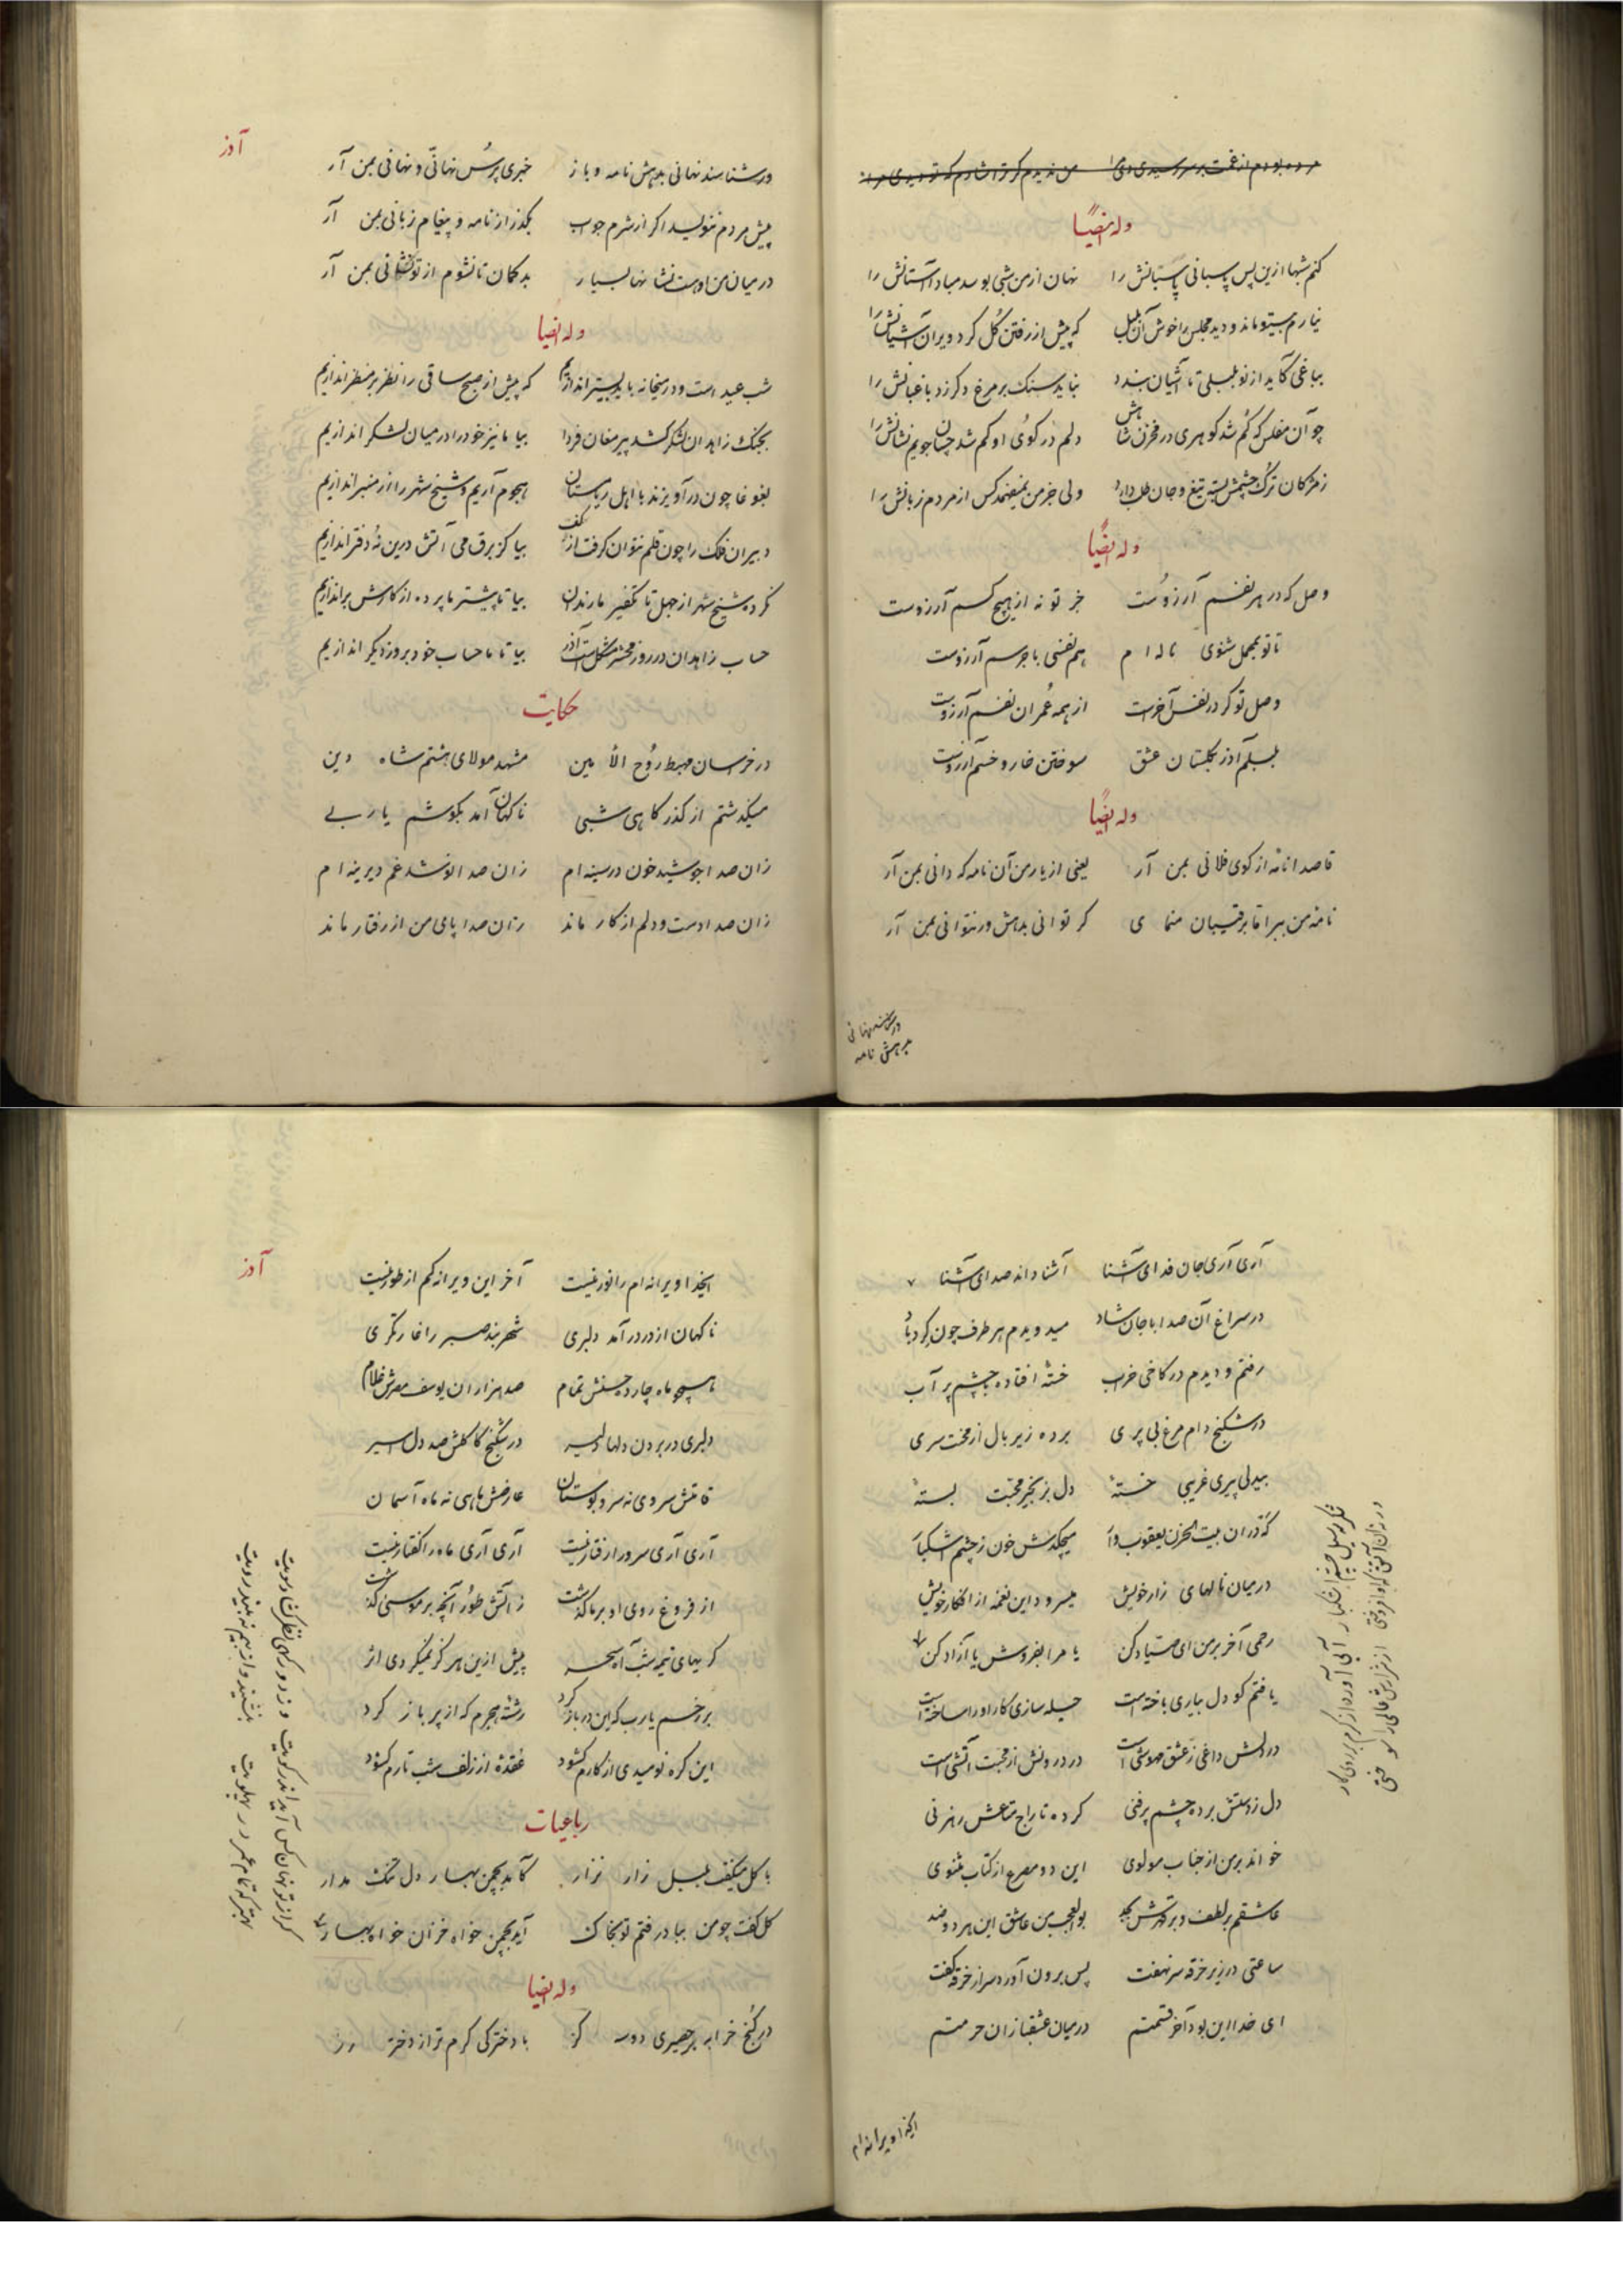 وله ایضاً
کنم شبها ازین پس پاسبانی پاسبانش را نهان از من شبی بوسد مباد آستانش را
نیارم بیتو ماند و دید مجلس را خوش آن بلبل که پیش از رفتن گل کرد ویران آشیانش را
بباغی کآید از نو بلبلی تا آشیان بندد نباید سنک بر مرغ دکر زد باغبانش را
چو آن مفلس که کم شد کوهری در مخزن شاهش دلم در کوی او کم شد چسان جویم نشانش را
ز مژکان ترک چشمش بسته تیغ و جان طلب دارد ولی جز من نمیفهمد کس از مردم زبانش را
وله ایضاً
وصل که در هر نفسم آرزوست جز تو نه از هیچ کسم آرزوست
تا تو بمحمل شنوی ناله ام هم نفسی با جرسم آرزوست
وصل تو کر در نفس آخرست از همه عمر ان نفسم آرزوست
بلبلم آذر بکلستان عشق سوختن خار و خسم آرزوست
وله ایضاً
قاصدا نامه از کوی فلانی بمن آر یعنی از یار من آن نامه که دانی بمن آر
نامه من ببر اما برقیبان منمای کر توانی بدهش ور نتوانی بمن آر
ور شناسند نهانی
بدهش نامه
آذر
ور شناسند نهانی بدهش نامه و باز خبری پرس نهانی و نهانی بمن آر
پیش مردم ننویسد اکر از شرم جواب بکذر از نامه و پیغام زبانی بمن آر
در میان من او هست نشانها بسیار بدکمان تا نشوم از تو نشانی بمن آر
وله ایضا
شب عید است و در میخانه باید بستر اندازیم که پیش از صبح ساقی را نظر بر منظر اندازیم
بجنک زاهدان لشکر کشد پیر مغان فردا بیا ما نیز خود را در میان لشکر اندازیم
بغوغا چون در آویزند با اهل ریا مستان هجوم آریم و شیخ شهر را از منبر اندازیم
دبیران فلک را چون قلم نتوان کرفت از کف بیا کز برق می آتش درین نه دفتر اندازیم
نکرده شیخ شهر از جهل تا تکفیر ما رندان بیا تا پیشتر ما پرده از کارش براندازیم
حساب زاهدان در روز محشر مشکل است آذر بیا تا ما حساب خود بروز دیکر اندازیم
حکایت
در خراسان مهبط روح الامین مشهد مولای هشتم شاه دین
میکذشتم از کذرکاهی شبی ناکهان آمد بکوشم یا ربی
زان صدا جوشید خون در سینه ام زان صدا نو شد غم دیرینه ام
زان صدا دست و دلم از کار ماند زان صدا پای من از رفتار ماند
آری آری جان فدای آشنا آشنا داند صدای آشنا
در سراغ آن صدا با جان شاد میدویدم هر طرف چون کردباد
رفتم و دیدم در کاخی خراب خسته افتاده با چشم پر آب
در شکنج دام مرغ بی پری برده زیر بال از محنت سری
بیدلی پیری غریبی خسته دل بزنجیر محبت بسته
در میان نالهای زار خویش میسرود این نغمه از افکار خویش
رحمی آخر بر من ای صیاد کن یا مرا بفروش یا آزاد کن
یافتم کو دل بیاری باخته است حیله سازی کار او را ساخته است
در دلش داغی ز عشق مهوشی است در درونش از محبت آتشی است
دل ز دستش برده چشم پر فنی کرده تاراج متاعش رهزنی
خواند بر من از جناب مولوی این دو مصرع از کتاب مثنوی
عاشقم بر لطف و بر قهرش بجد بوالعجب من عاشق این هر دو ضد
ساعتی در زیر خرقه سر نهفت پس برون آورد سر از خرقه کفت
ای خدا این بود آخر قسمتم در میان عشقبازان حرمتم
ایخدا ویرانه ام
آذر
ایخدا ویرانه ام را نور نیست آخر این ویرانه کم از طور نیست
ناکهان از در درآمد دلبری شهربند صبر را غارتکری
همچو ماه چارده حسنش تمام صد هزاران یوسف مصرش غلام
دلبری در بردن دلها دلیر در شکنج کاکلش صد دل اسیر
قامتش سروی نه سرو بوستان عارضش ماهی نه ماه آسمان
آری آری سرو را رفتار نیست آری آری ماه را کفتار نیست
از فروغ روی او بر ما کذشت ز آتش طور آنچه بر موسی کذشت
کریهای نیمه شب آه سحر پیش ازین هر کز نمیکردی اثر
بر رخم یا رب که این در باز کرد رشته هجرم که از پر باز کرد
این کره نومیدی از کارم کشود عقده از زلف شب تارم کشود
رباعیات
با کل میکفت بلبل زار نزار کآید بچمن بهار دل تنک مدار
کل کفت چو من بباد رفتم تو بخاک آید بچمن خواه خزان خواه بهار
وله ایضا
در کنج خرابه بر حصیری دو سه کز با دخترکی کرم تر از دختر رز